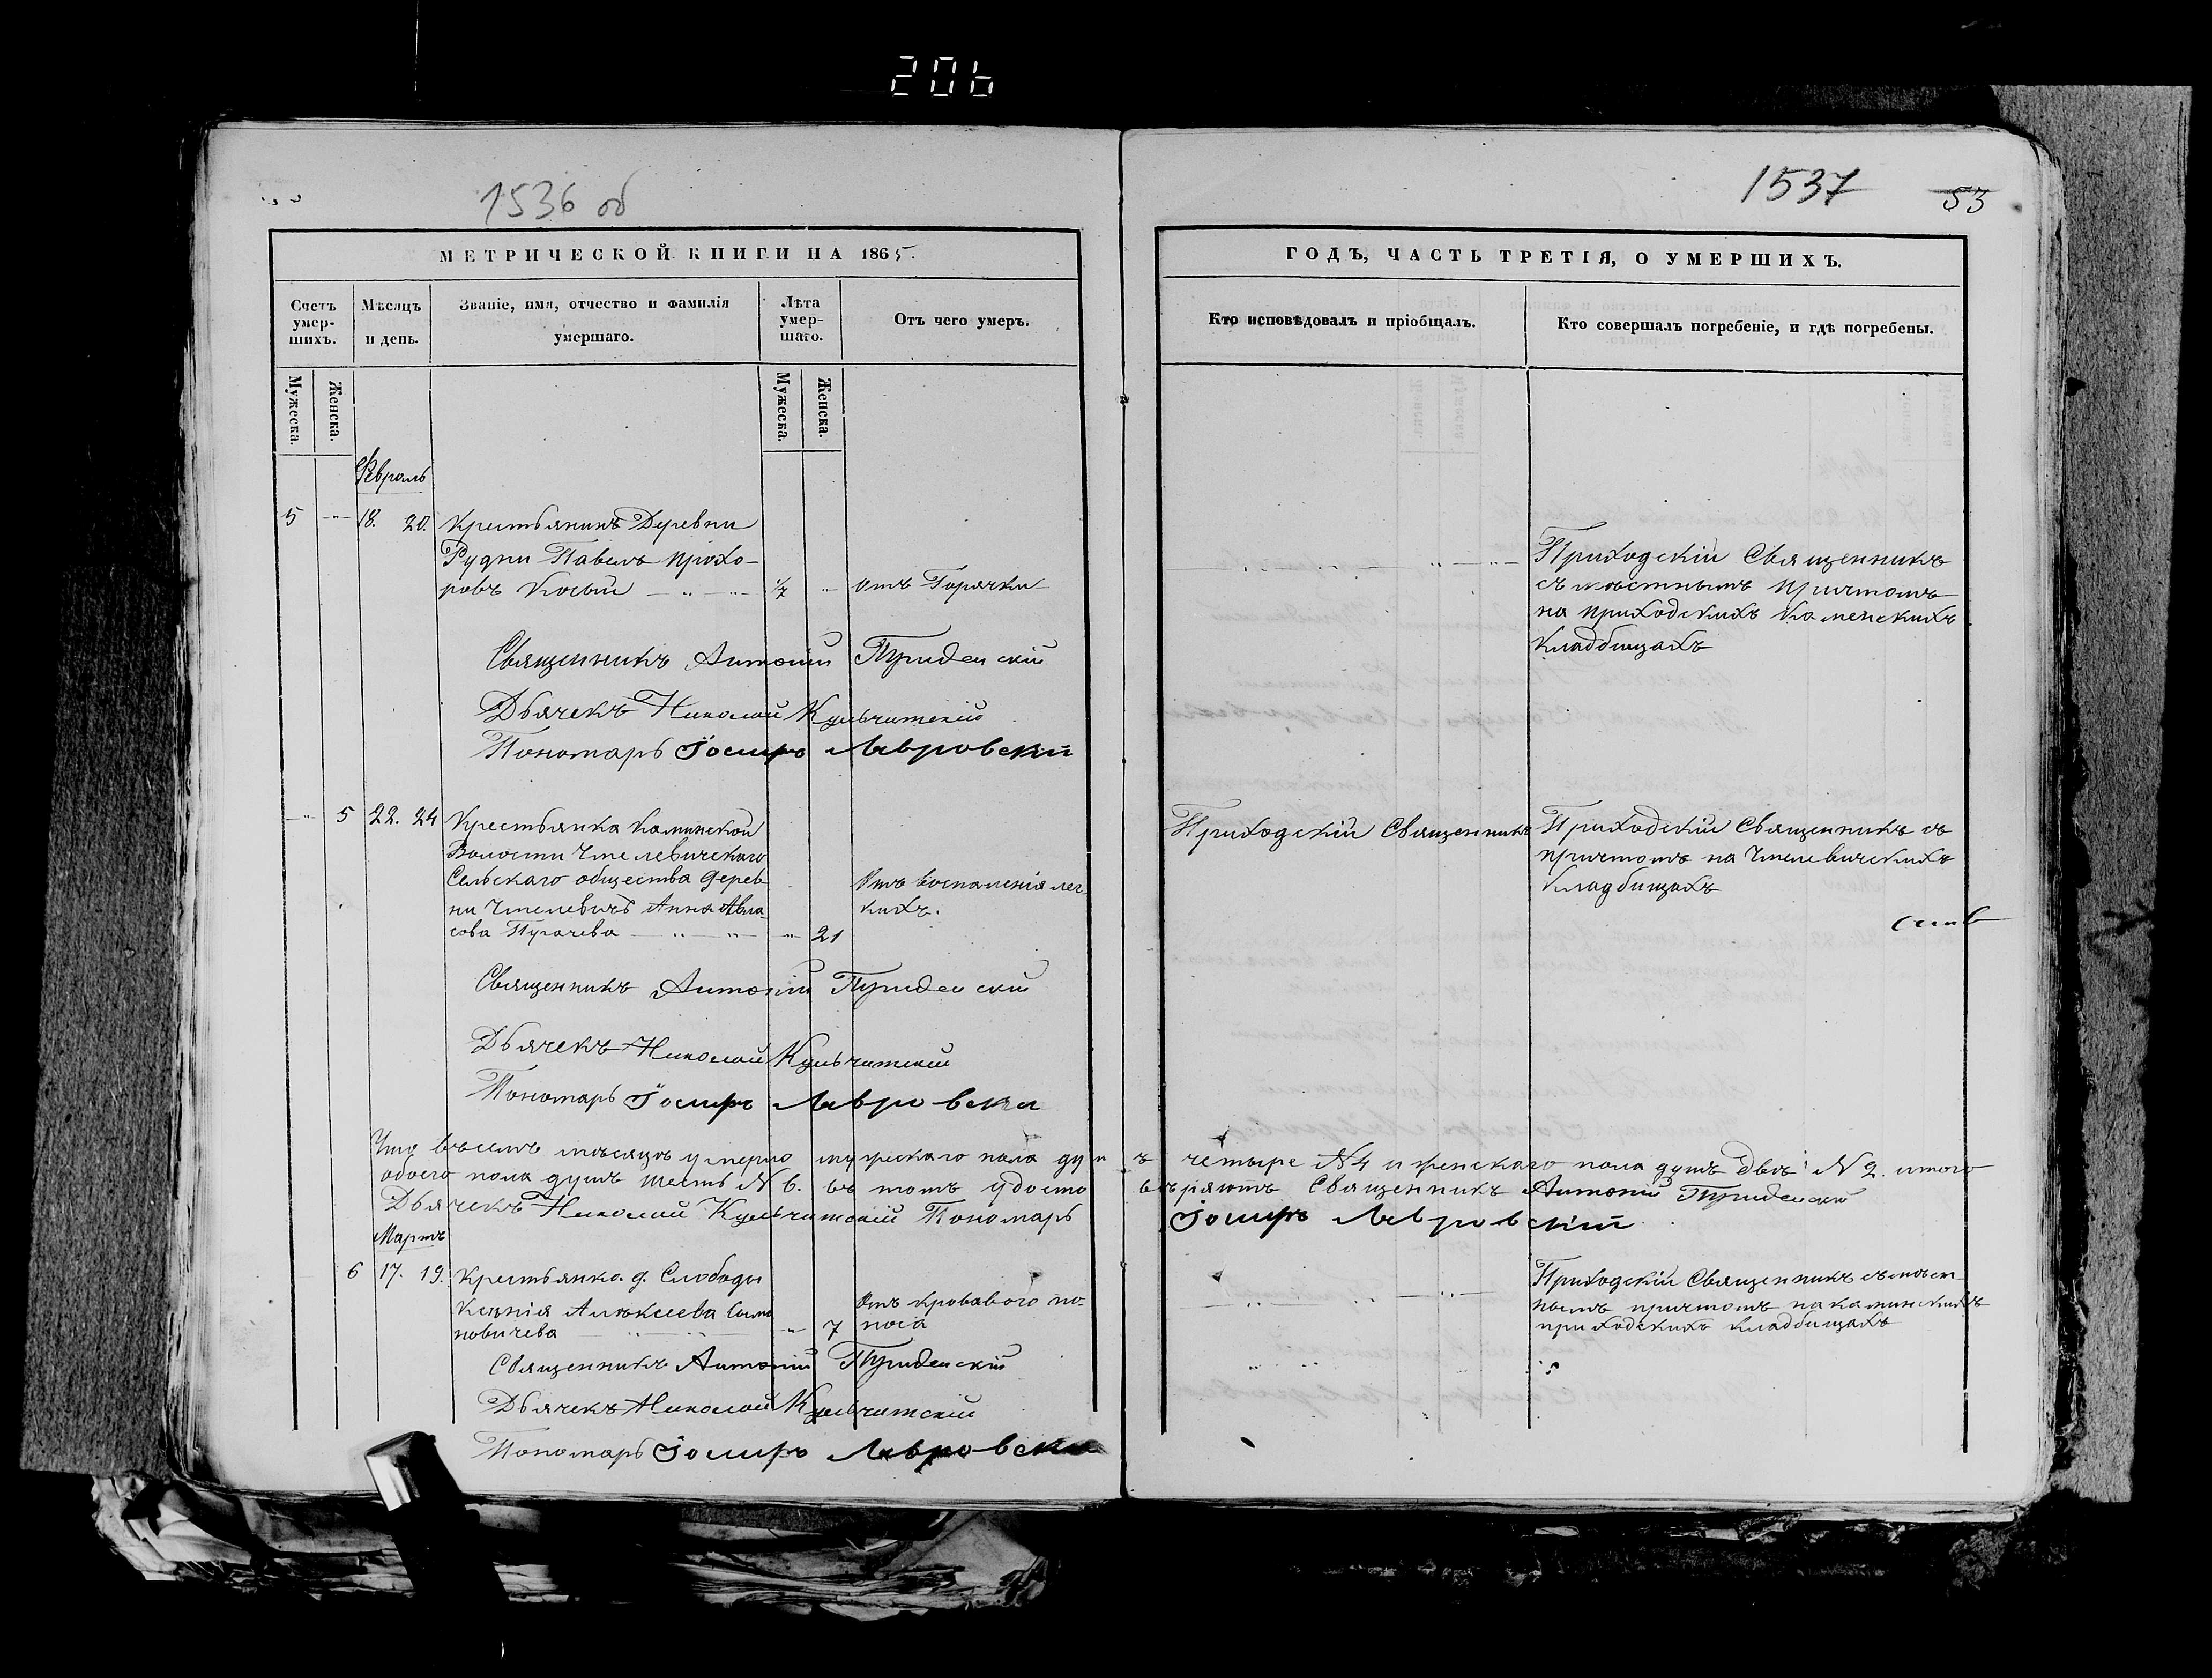 206
1536 об
1537 53
МЕТРИЧЕСКОЙ КНИГИ НА 1865.
ГОДЪ, ЧАСТЬ ТРЕТІЯ, О УМЕРШИХЪ.
Счетъ умер-шихъ.
Мѣсяцъ и день.
Званіе, имя, отчество и фамилія умершаго.
Лѣта умер-шаго.
Отъ чего умеръ.
Кто исповѣдовалъ и пріобщалъ.
Кто совершалъ погребеніе, и гдѣ погребены.
Мужеска.
Женска.
Мужеска.
Женска.
Февраль
5 18. 20. Крестьянинъ Деревни
Рудни Павелъ Прохо-
ровъ Косый отъ Горячки
Приходскій Священникъ
съ мѣстнымъ причтомъ
на приходскихъ Каменскихъ
Кладбищахъ
Священникъ Антоній
Дьячекъ Николай Кульчитскій
Пономарь Іосифъ Лавровскій
5 22. 24 Крестьянка Каминской
Волости Чтелевическаго
Сельскаго общества дерев-
ни Чтелевичъ Анна Авла-
сова Пугачева 21
Отъ воспаленія лег-
кихъ.
Приходскій Священникъ
Приходскій Священникъ съ
причтомъ на Чтелевическихъ
Кладбищахъ
Священникъ Антоній
Дьячекъ Николай Кульчитскій
Пономарь Іосифъ Лавровскій
мѣсяцѣ умерло мужескаго пола душъ четыре № 4 и женскаго пола душъ двѣ № 2. итого
обоего пола душъ шесть № 6. въ томъ удостовѣряютъ Священникъ Антоній
Дьячекъ Николай Кульчитскій Пономарь Іосифъ Лавровскій
Мартъ
6 17. 19. Крестьянка д. Слободы
Ксенія Алексѣева
новичева 7
Отъ кроваваго по-
носа
Приходскій Священникъ съ мѣст-
нымъ причтомъ на Каминскихъ
приходскихъ кладбищахъ
Священникъ Антоній
Дьячекъ Николай Кульчитскій
Пономарь Іосифъ Лавровскій